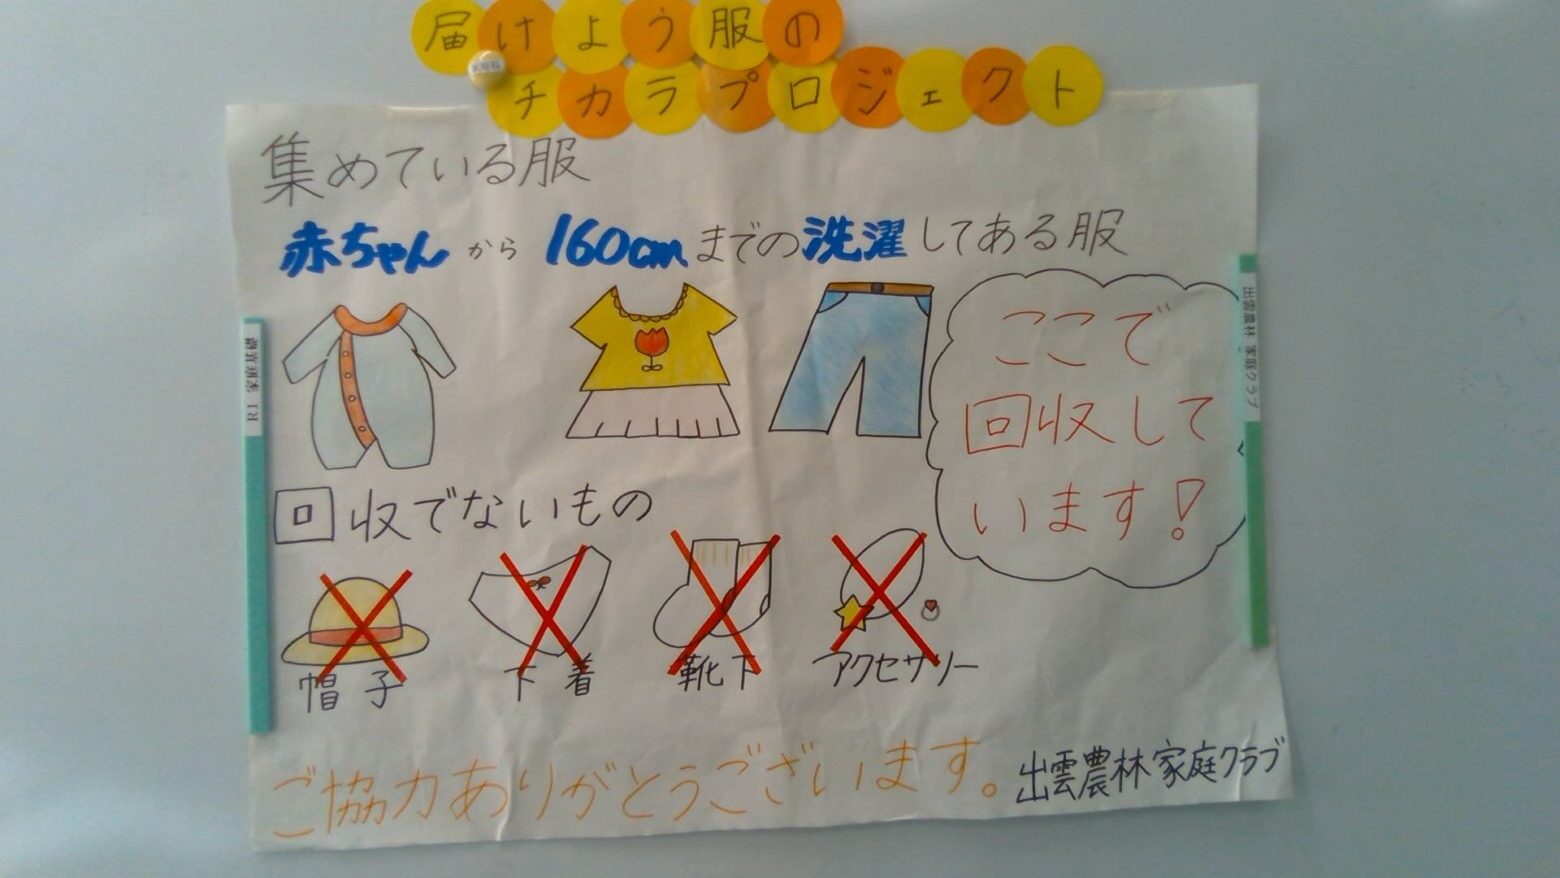 届けよう服の
チカラプロジェクト
集めている服
赤ちゃんから160cmまでの洗濯してある服
ここで
回収して
います!
回収でないもの
帽子
下着
靴下
アクセサリー
ご協力ありがとうございます。
出雲農林家庭クラブ
出雲農林 家庭クラブ